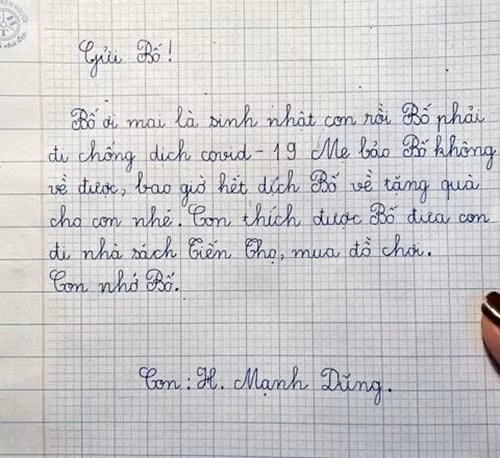 Gửi Bố!
Bố ơi mai là sinh nhật con rồi Bố phải
đi chống dịch covid - 19 Mẹ bảo Bố không
về được, bao giờ hết dịch Bố về tặng quà
cho con nhé. Con thích được Bố đưa con
đi nhà sách Tiến Thọ, mua đồ chơi.
Con nhớ Bố.
Con: H. Mạnh Dũng.